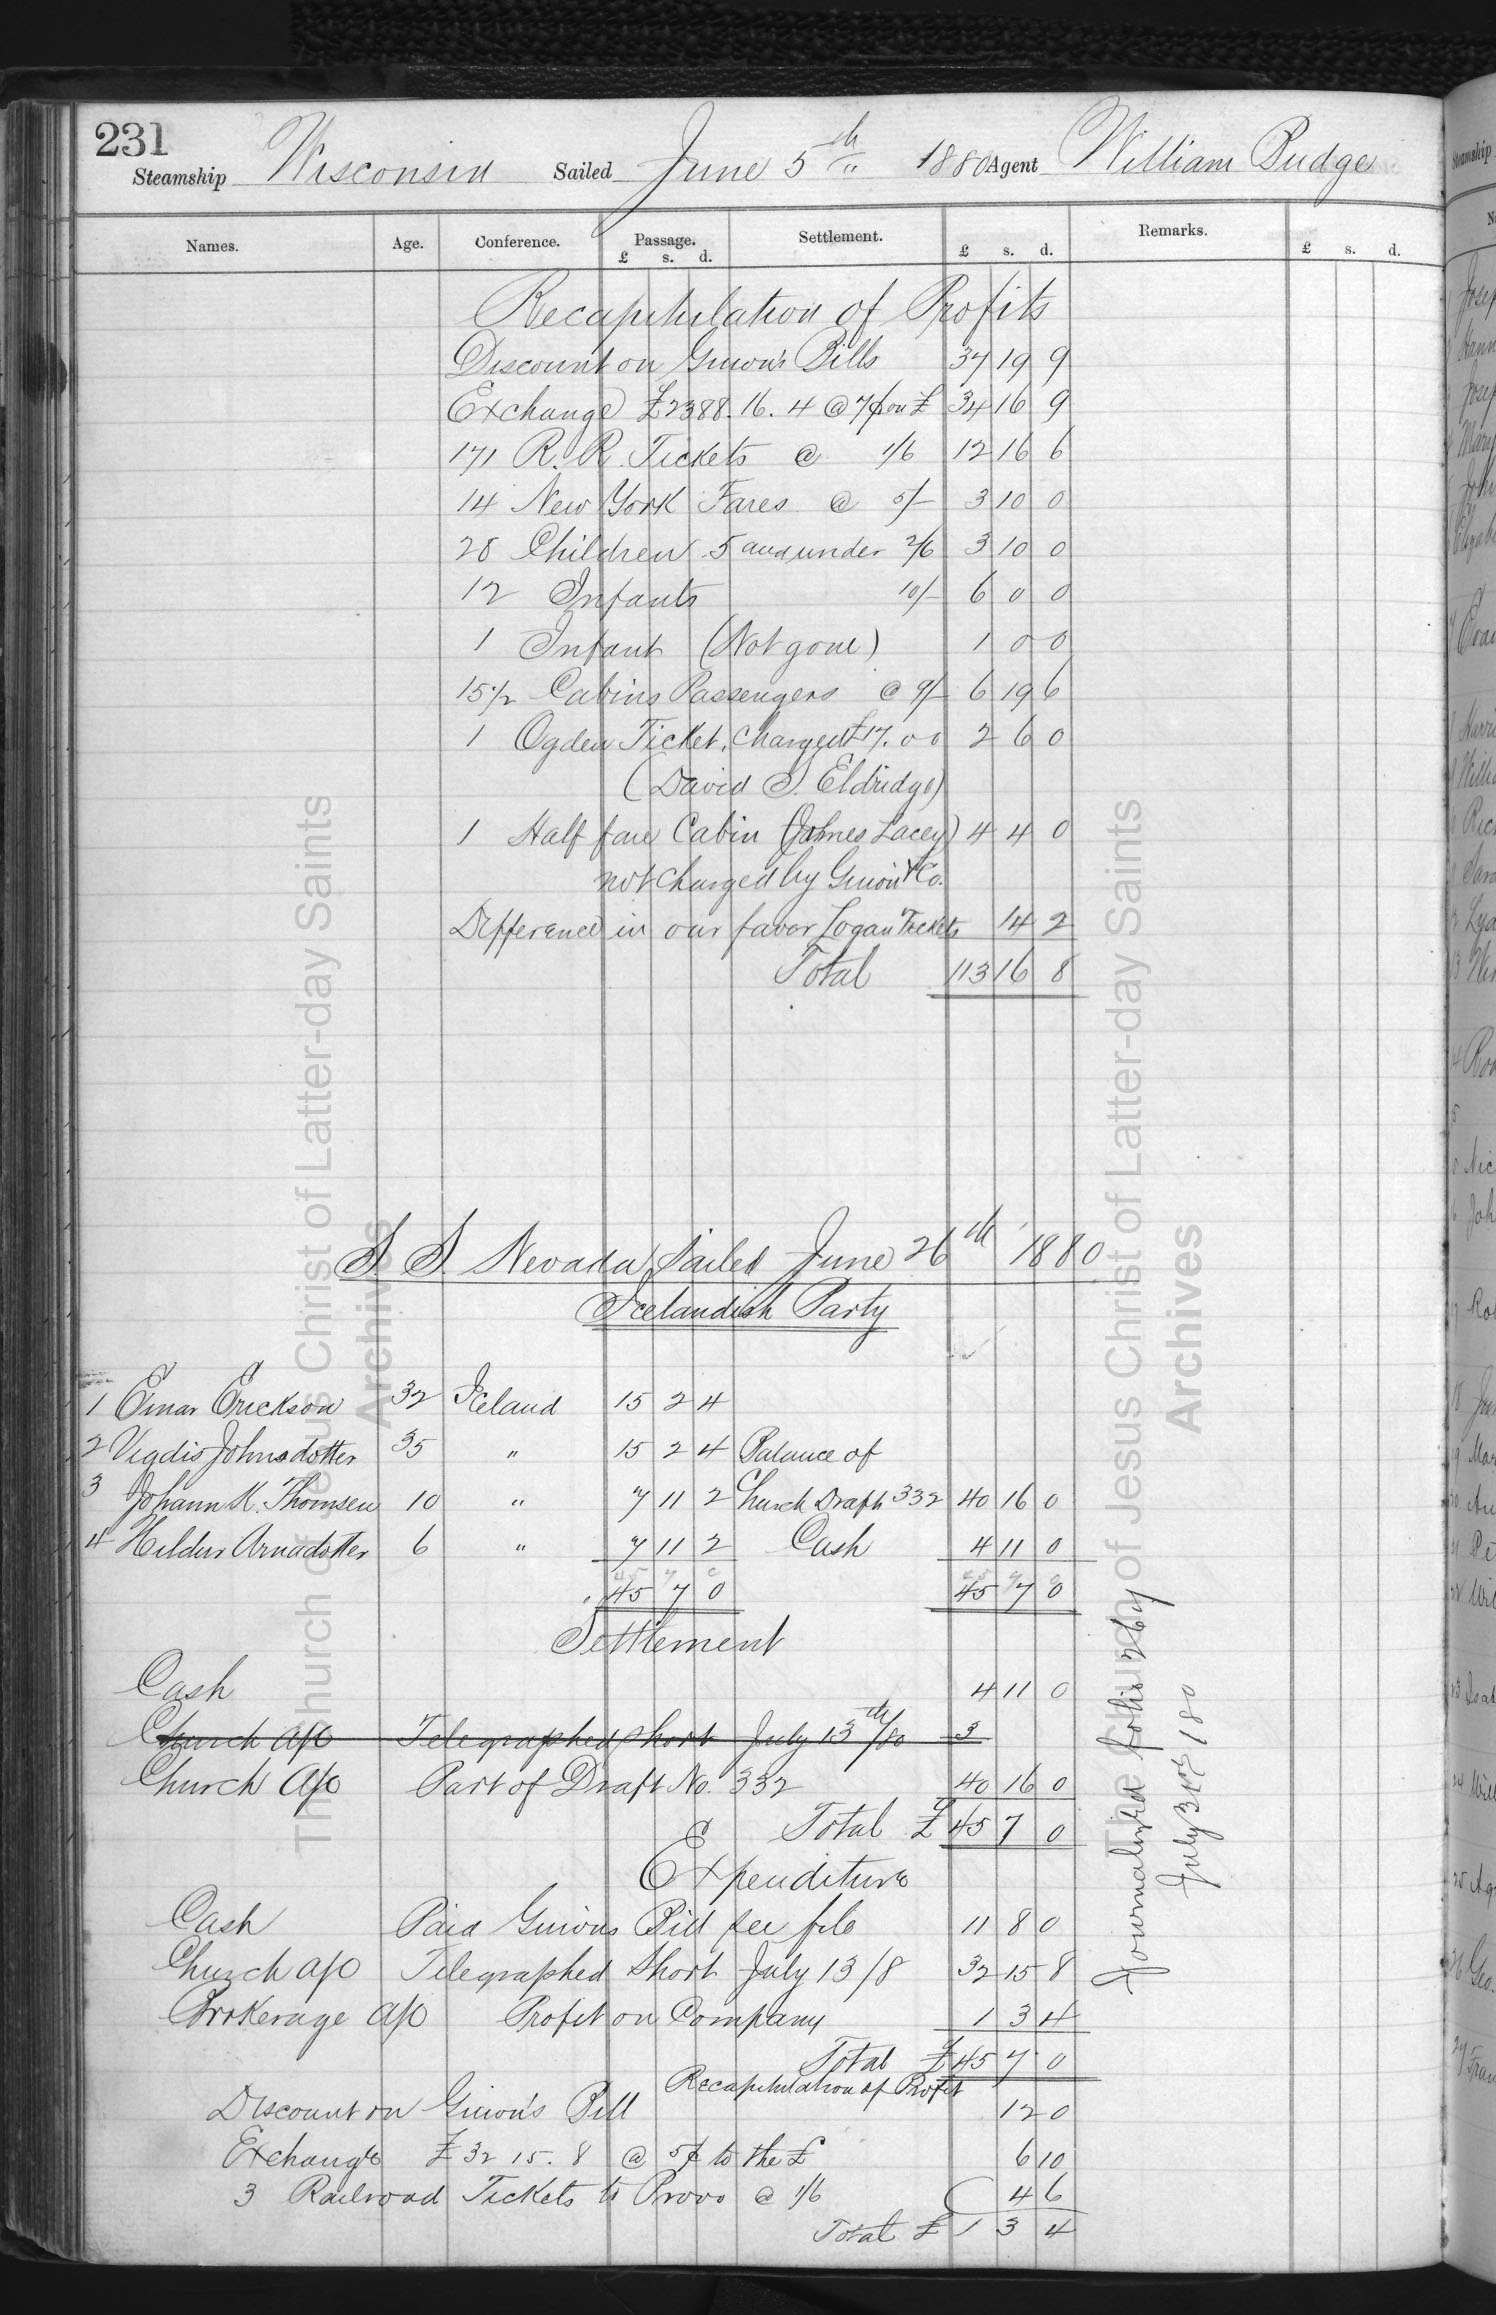 231
Steamship Wisconsin Sailed June 5th 1880 Agent William Budge
Names. Age. Conference. Passage. £ s. d. Settlement. £ s. d. Remarks. £ s. d.
Recapitulation of Profits
Discount on Guion's Bills 37 19 9
Exchange £2388. 16. 4 @ 7¢ on £ 34 16 9
171 R. R. Tickets @ 1/6 12 16 6
14 New York Fares @ 5/- 3 10 0
28 Children 5 and under 2/6 3 10 0
12 Infants 10/- 6 0 0
1 Infant (Not gone) 1 0 0
15 1/2 Cabins Passengers @ 9/- 6 19 6
1 Ogden Ticket, charged £17. 0 0 2 6 0
(David S. Eldridge)
1 Half fare Cabin (James Lacey) 4 4 0
not charged by Guion & Co.
Difference in our favor Logan Tickets 14 2
Total 113 16 8
S. S. Nevada Sailed June 26th 1880
Icelandish Party
1 Einar Erickson 32 Iceland 15 2 4
2 Vigdis Johnsdotter 35 " 15 2 4 Balance of
3 Johann K. Thomsen 10 " 7 11 2 Church Draft 332 40 16 0
4 Hildur Arnadotter 6 " 7 11 2 Cash 4 11 0
45 7 0 45 7 0
Settlement
Cash 4 11 0
Church a/c Telegraphed short July 13th/80 3
Church a/c Part of Draft No. 332 40 16 0
Total £ 45 7 0
Expenditure
Cash Paid Guions Bill see file 11 8 0
Church a/c Telegraphed Short July 13/8 32 15 8
Brokerage a/c Profit on Company 1 3 4
Total £ 45 7 0
Recapitulation of Profit
Discount on Guion's Bill 12 0
Exchange £ 32 15. 8 @ 5¢ to the £ 6 10
3 Railroad Tickets to Provo @ 1/6 4 6
Total £ 1 3 4
Journalized folio 267
July 31st/80
The Church of Jesus Christ of Latter-day Saints
Archives
The Church of Jesus Christ of Latter-day Saints
Archives